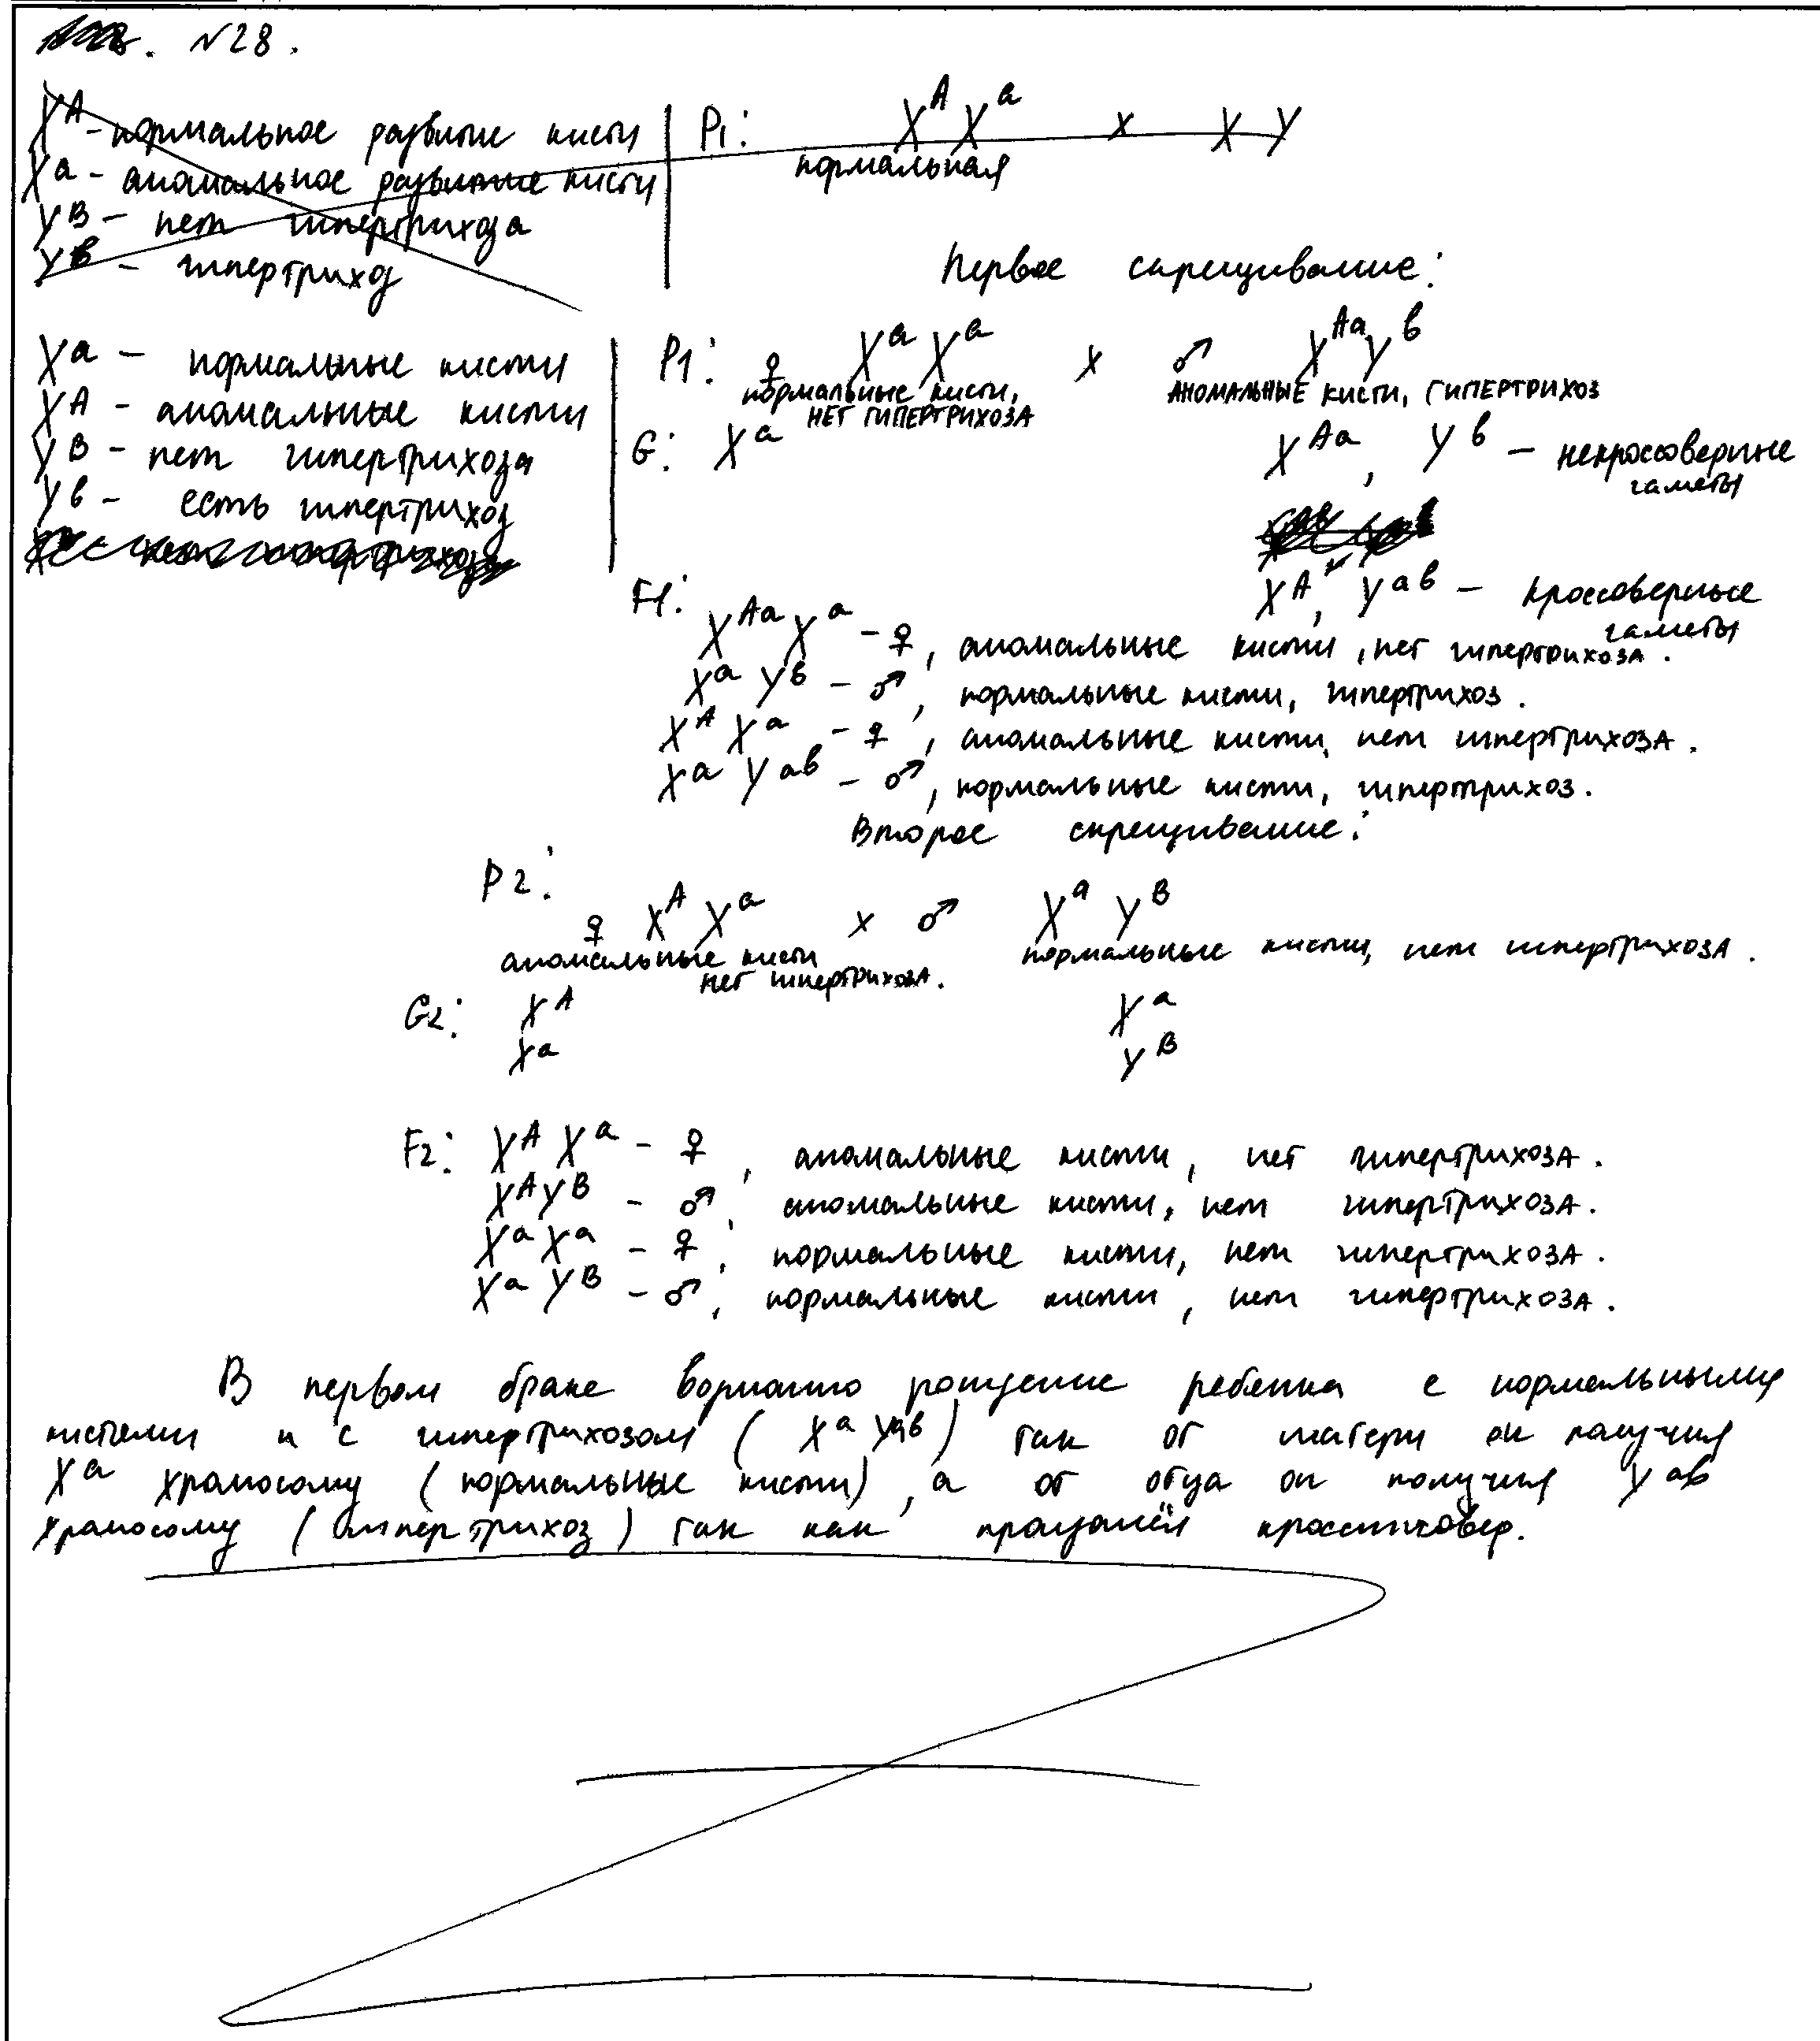 №28.
X^A - нормальное развитие кисти | P1: X^A X^a x X Y
нормальная
X^a - аномальное развитие кисти
Y^B - нет гипертрихоза
Y^в - гипертрихоз
Первое скрещивание:
X^a - нормальные кисти | P1: ♀ X^a X^a x ♂ X^Aa Y^в
X^A - аномальные кисти
нормальные кисти, НЕТ ГИПЕРТРИХОЗА
АНОМАЛЬНЫЕ КИСТИ, ГИПЕРТРИХОЗ
Y^B - нет гипертрихоза
Y^в - есть гипертрихоз
G: X^a X^Aa, Y^в - некроссоверные гаметы
X^A, Y^aв - кроссоверные гаметы
F1: X^Aa X^a - ♀, аномальные кисти, нет гипертрихоза.
X^a Y^в - ♂, нормальные кисти, гипертрихоз.
X^A X^a - ♀, аномальные кисти, нет гипертрихоза.
X^a Y^aв - ♂, нормальные кисти, гипертрихоз.
Второе скрещивание:
P2:
♀ X^A X^a x ♂ X^a Y^B
аномальные кисти нормальные кисти, нет гипертрихоза.
нет гипертрихоза.
G2: X^A X^a
X^a Y^B
F2: X^A X^a - ♀, аномальные кисти, нет гипертрихоза.
X^A Y^B - ♂, аномальные кисти, нет гипертрихоза.
X^a X^a - ♀, нормальные кисти, нет гипертрихоза.
X^a Y^B - ♂, нормальные кисти, нет гипертрихоза.
В первом браке рождение ребенка с нормальными
кистями и с гипертрихозом (X^a Y^aв) так от матери он получил
X^a хромосому (нормальные кисти), а от отца он получил Y^aв
хромосому (гипертрихоз) так как кроссинговер.